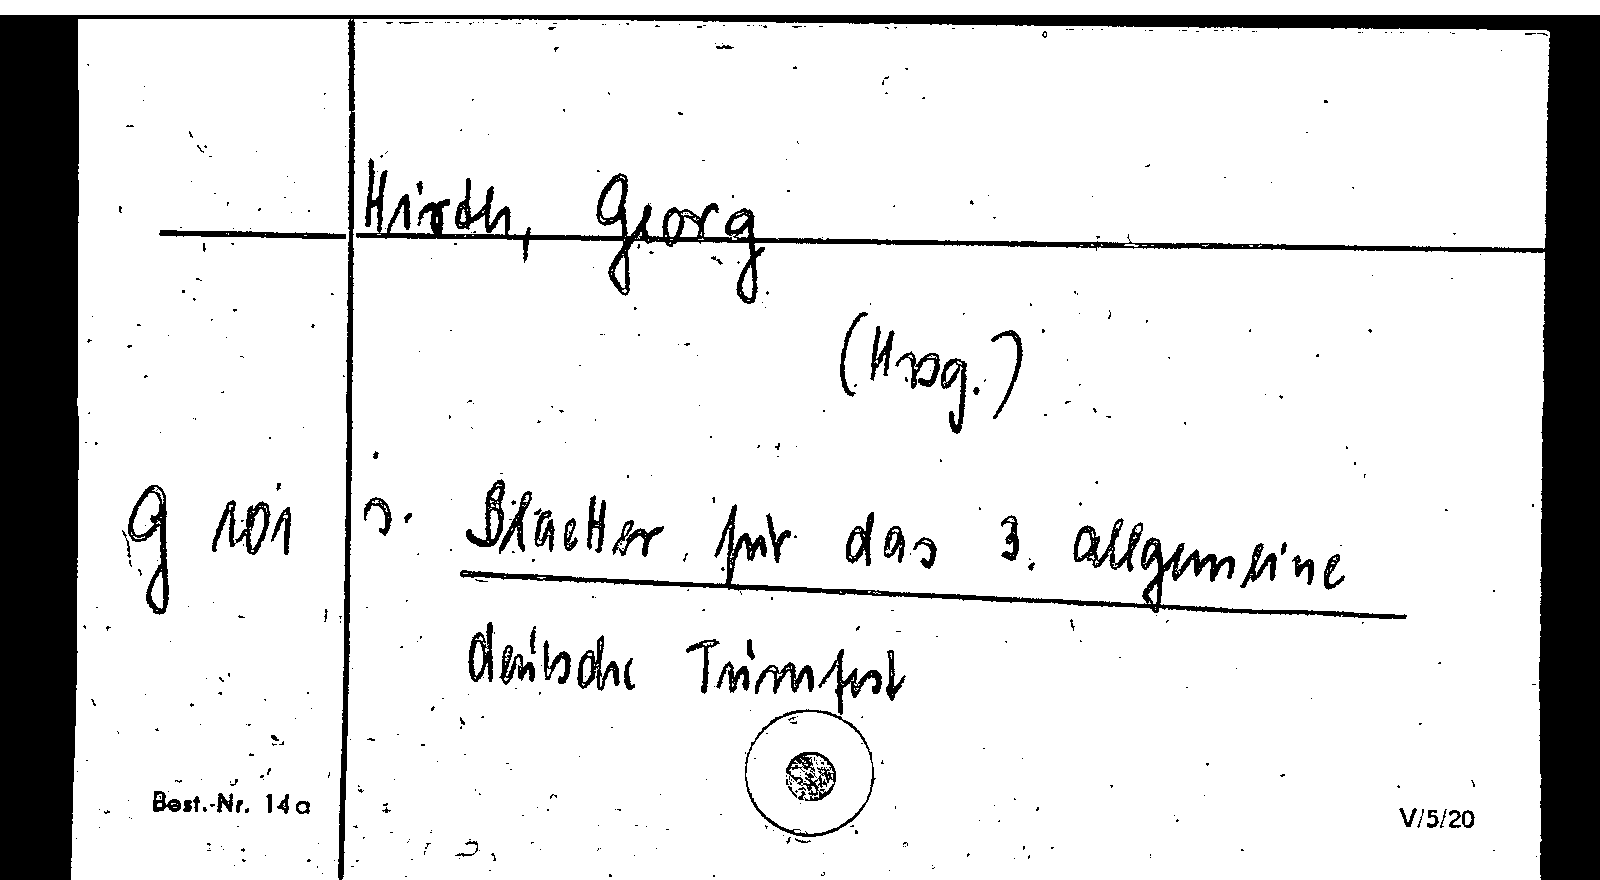 Hirth, Georg
(Hrsg.)
G 101 s. Blaetter für das 3. allgemeine
deutsche Turnfest
Best.-Nr. 14a V/5/20